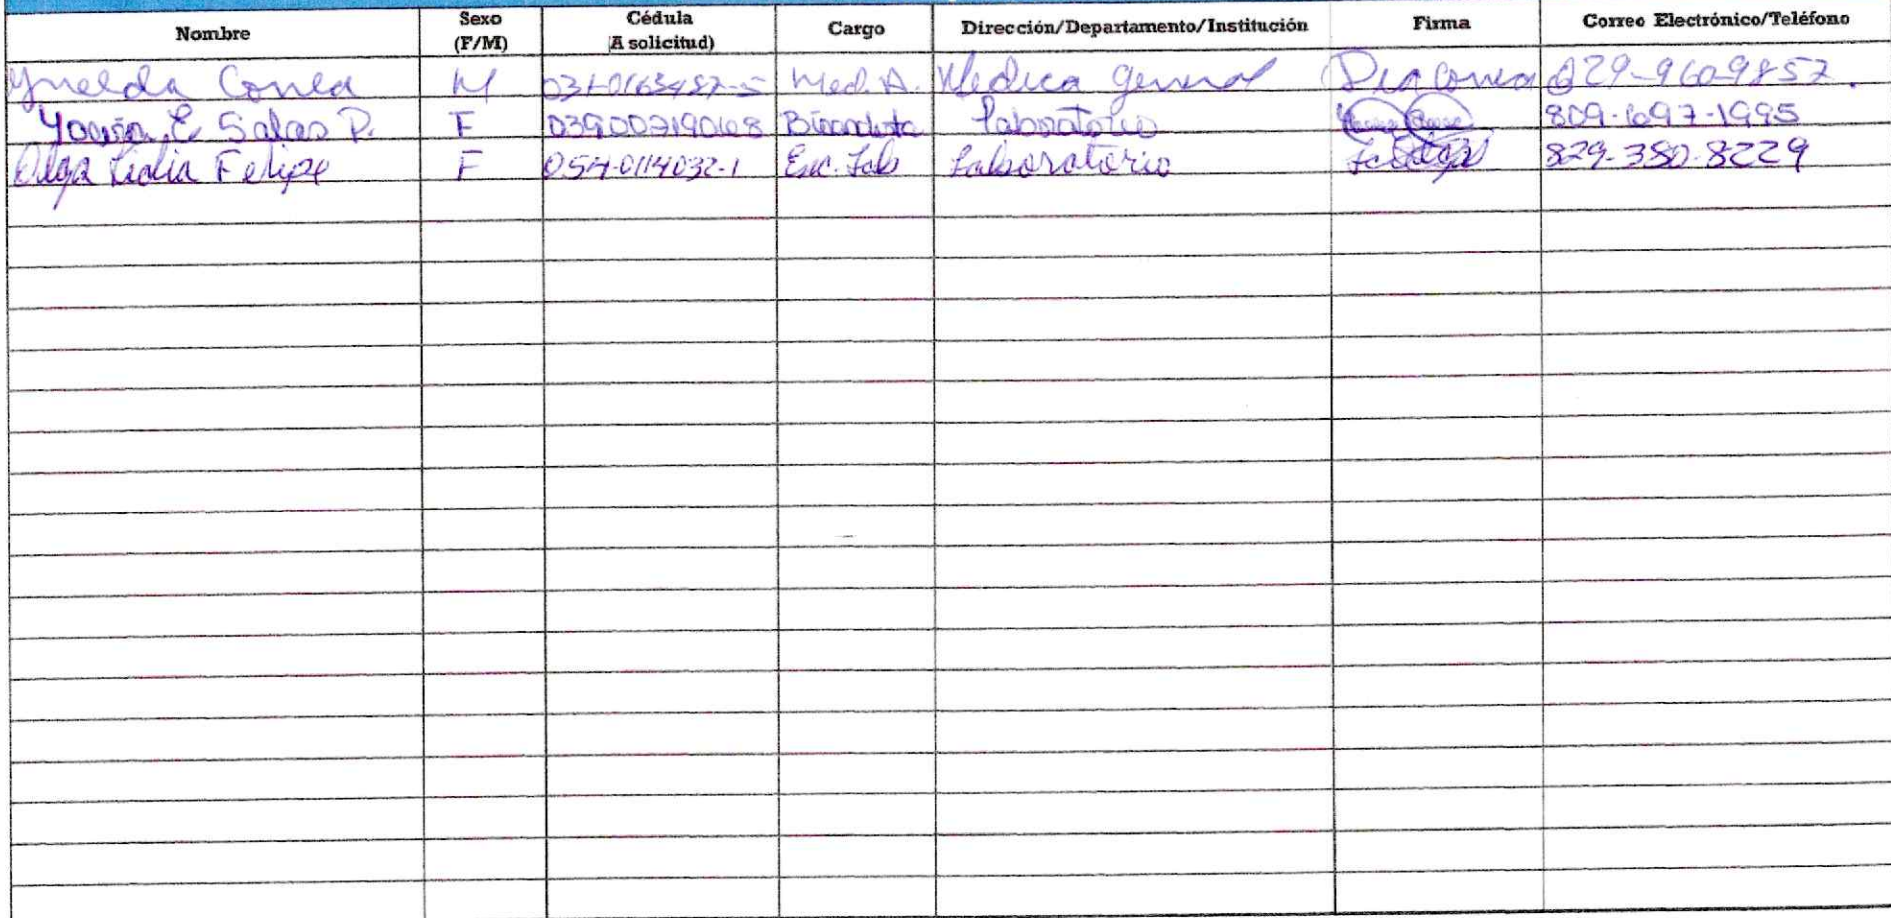 Nombre Sexo (F/M) Cédula A solicitud) Cargo Dirección/Departamento/Institución Firma Correo Electrónico/Teléfono
Correa M 031-0163487-5 Med. A. Medica General Dra Correa 829-960-9857.
E Salas P. F Laboratorio 809-697-1995
Olga Lidia Felipe F 054-0114032-1 Enc. Lab Laboratorio 829-380-8229